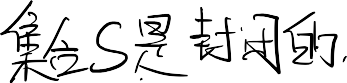 集合S是封闭的.